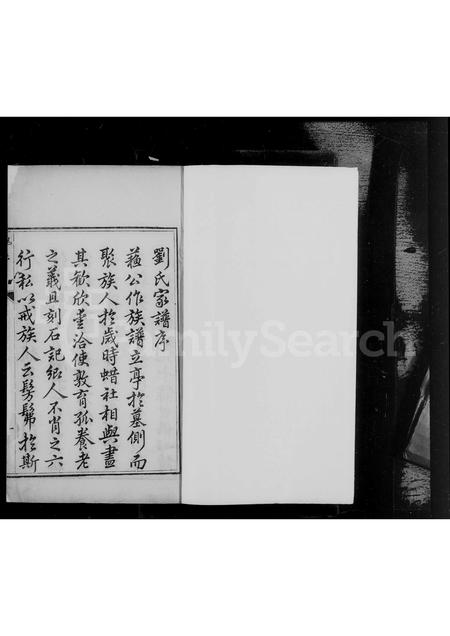 劉氏家譜序
蘓公作族譜立亭於墓側而
聚族人於歲時蜡社相與盡
其歓欣愛洽使敦育孤養老
之義且刻石記鄉人不肖之六
行耘以戒族人云髣髴於斯
FamilySearch